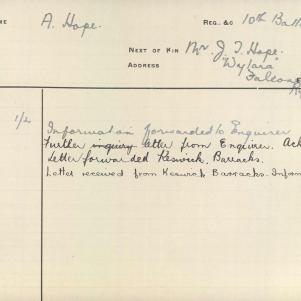 ME A. Hope. REG. &C 10th Batt
NEXT OF KIN Mr. J. T. Hope.
ADDRESS "Wylara"
Falcon
1/2 Information forwarded to Enquirer
Further inquiry letter from Enquirer. Ack
Letter forwarded Keswick, Barracks.
Letter received from Keswick Barracks. Inform